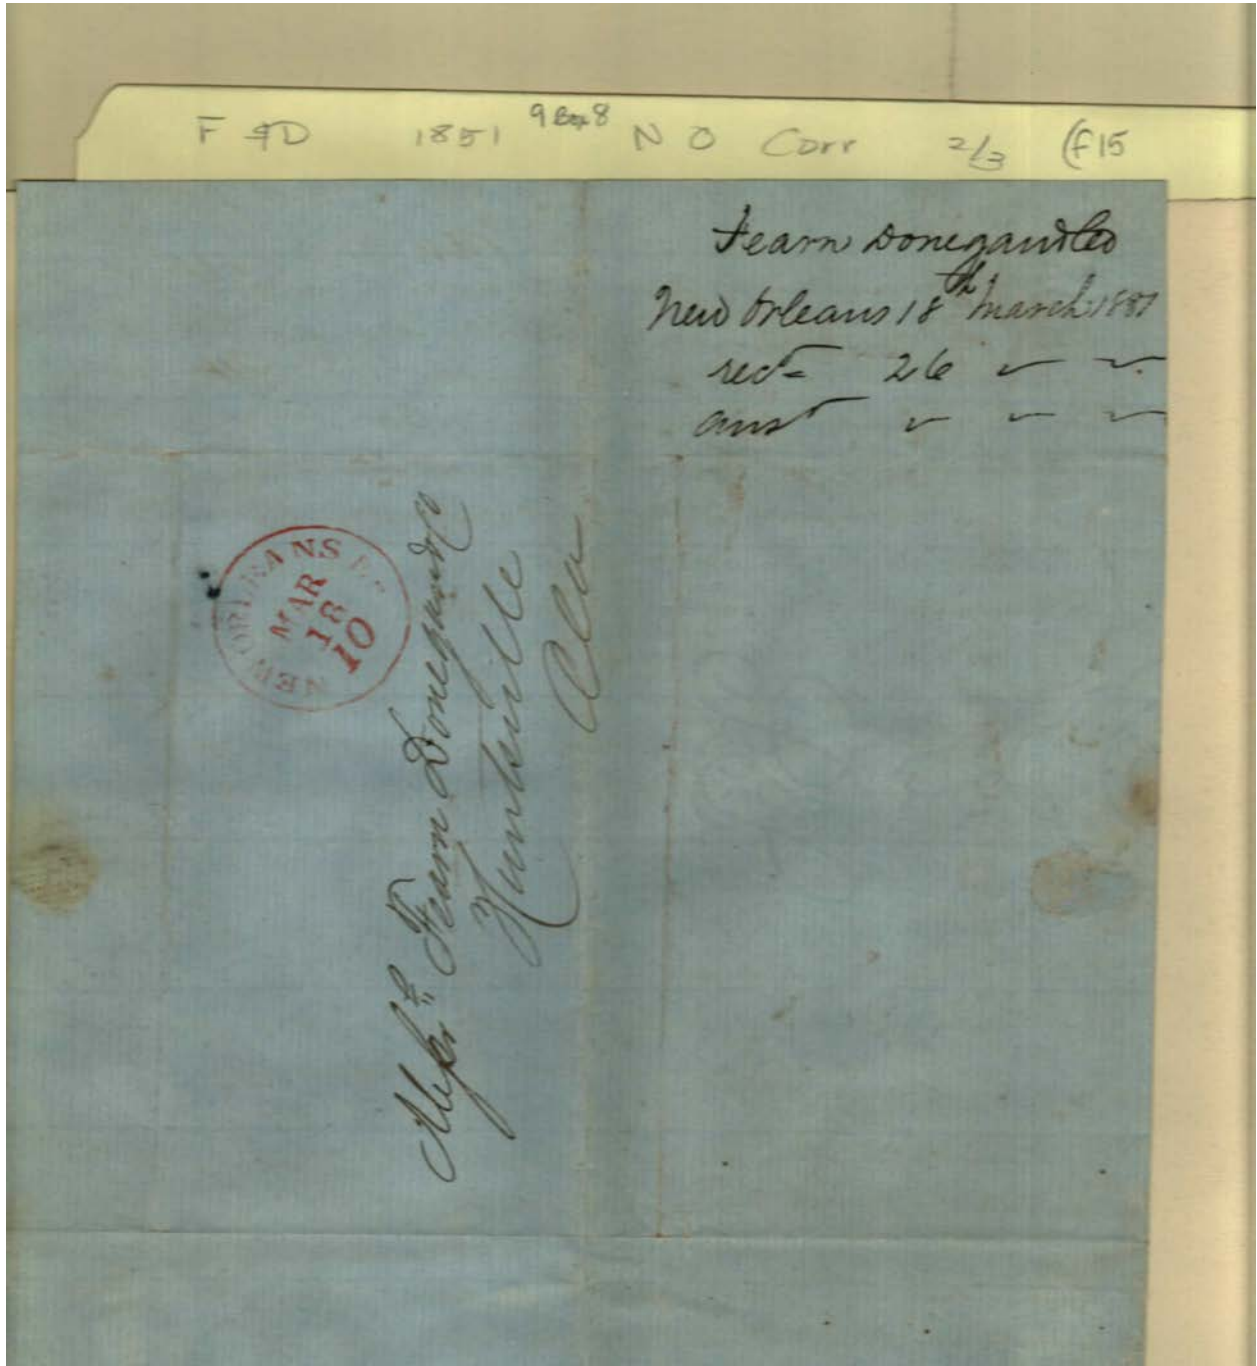 F & D 1851 9 Box 8 N O Corr 2/3 (F15
Fearn Donegan & Co
New Orleans 18th March 1851
recd 26 " "
ansd " " "
NEW ORLEANS
MAR
18
10
Messrs Fearn Donegan & Co
Huntsville
Ala